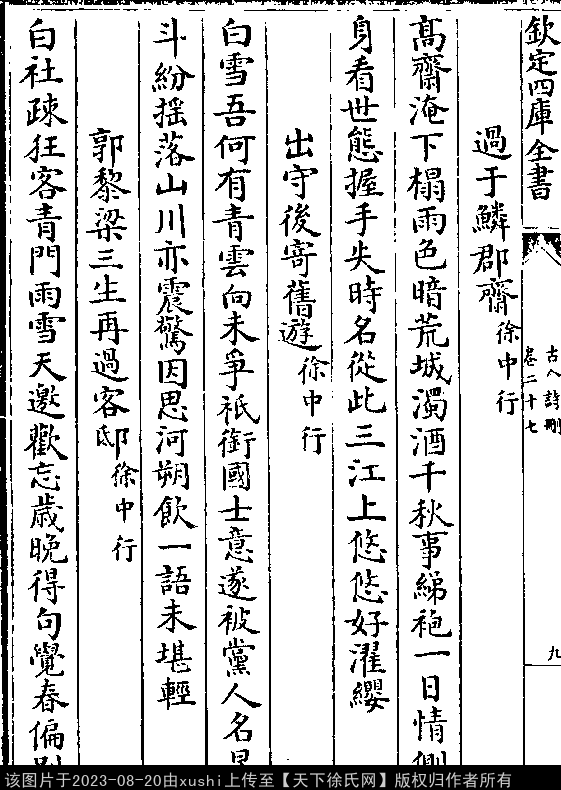 欽定四庫全書
古今詩刪
卷二十七
九
過于鱗郡齋徐中行
高齋淹下榻雨色暗荒城濁酒千秋事綈袍一日情側
身看世態握手失時名從此三江上悠悠好濯纓
出守後寄舊遊徐中行
白雪吾何有青雲向未爭祇銜國士意遂被黨人名星
斗紛揺落山川亦震驚因思河朔飲一語未堪輕
郭黎梁三生再過客邸徐中行
白社疎狂客青門雨雪天邀歡忘歲晩得句覺春偏別
该图片于2023-08-20由xushi上传至【天下徐氏网】版权归作者所有